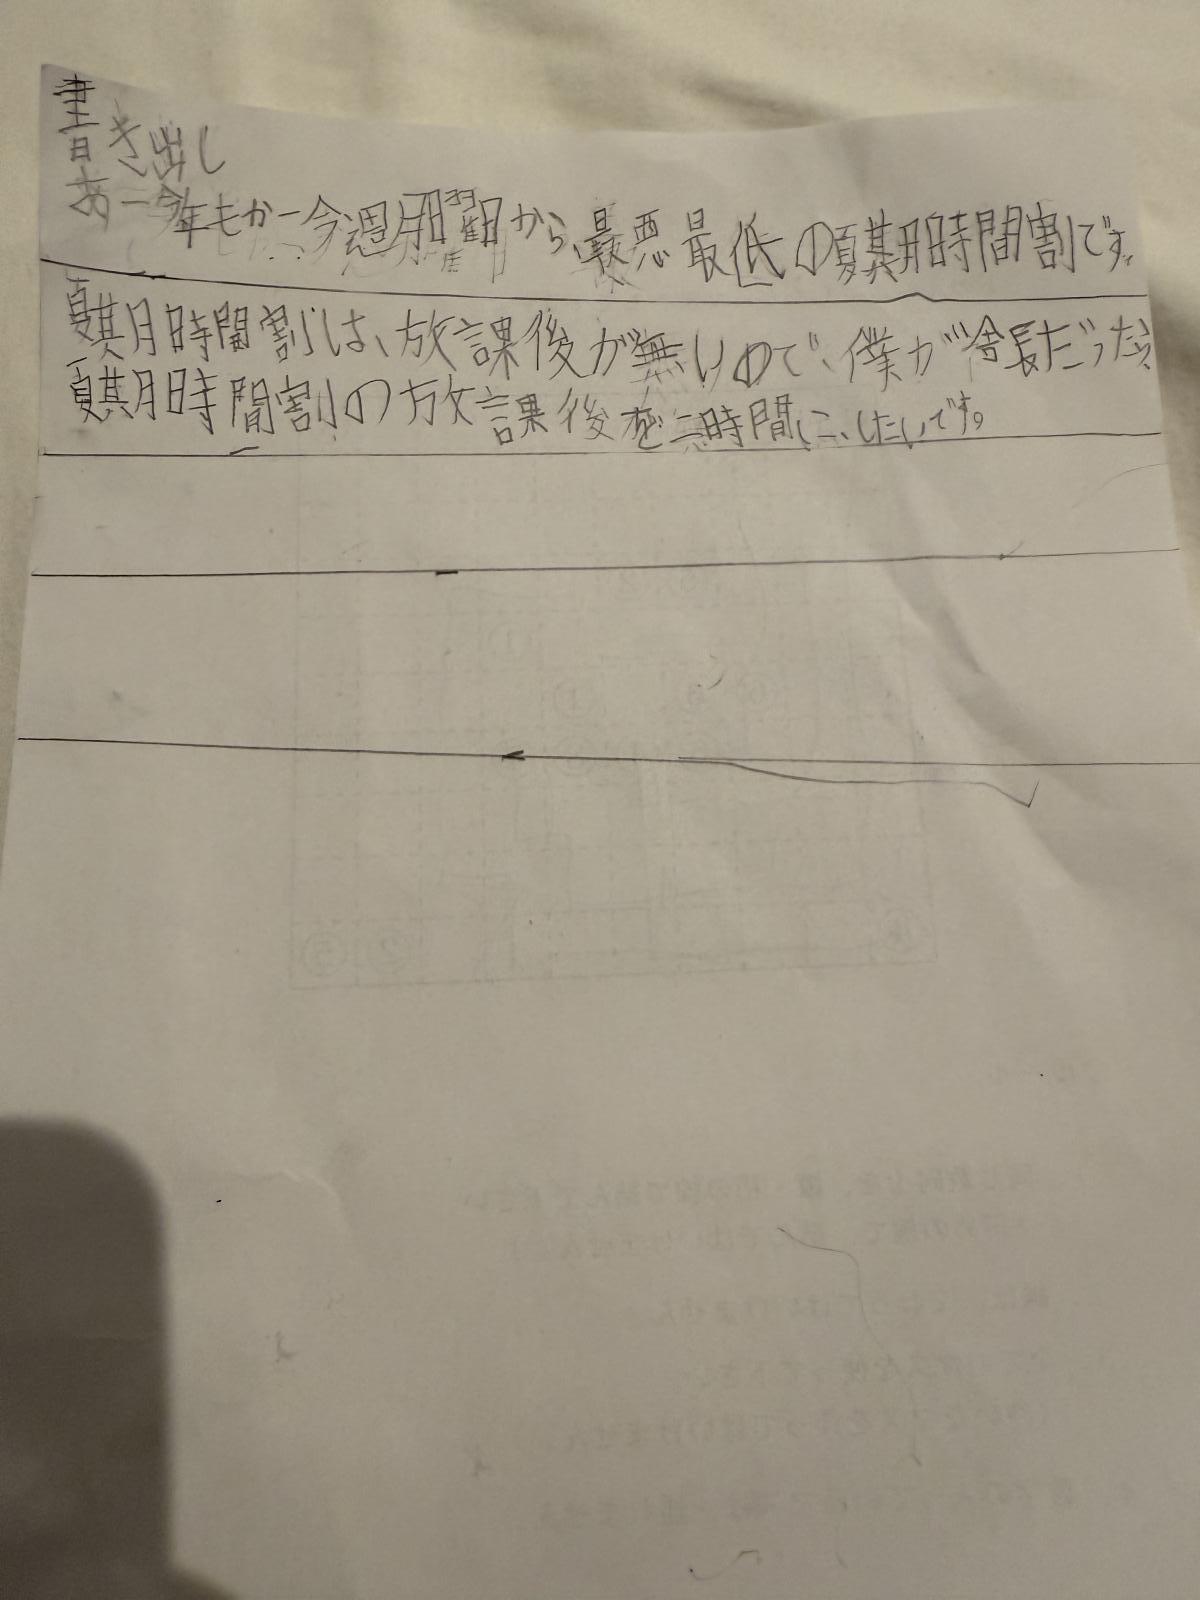 書き出し
あー今年もかー今週月曜日から、最悪最低の夏期時間割です。
夏期時間割は、放課後が無いので、僕が舎長だったら、
夏期時間割の放課後を二時間にしたいです。